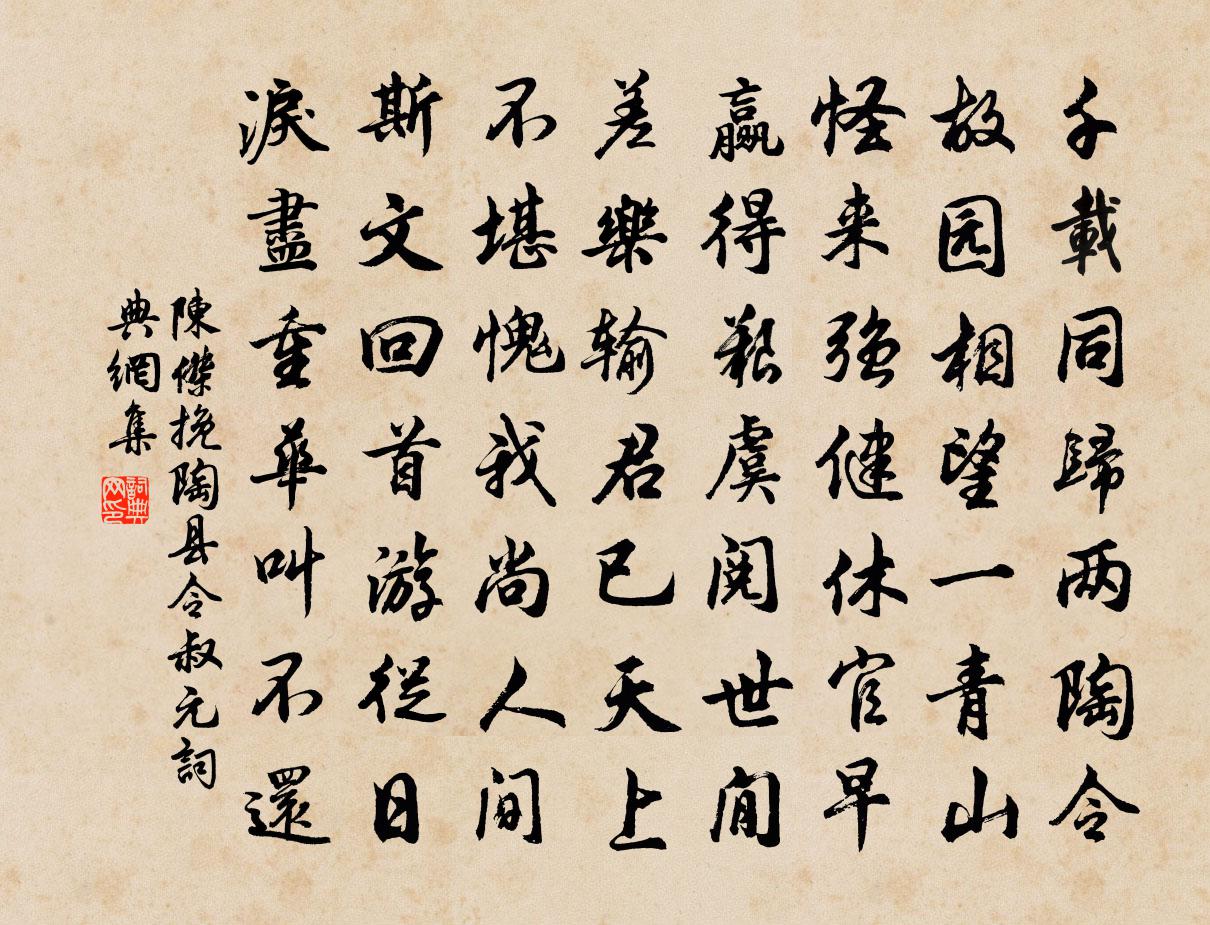 千載同歸两陶令
故园相望一青山
怪来强健休官早
贏得艱虞閱世間
差樂输君已天上
不堪愧我尚人間
斯文回首游從日
淚盡重華叫不還
陳傑挽陶县令叔元詞
典網集
詞典网印